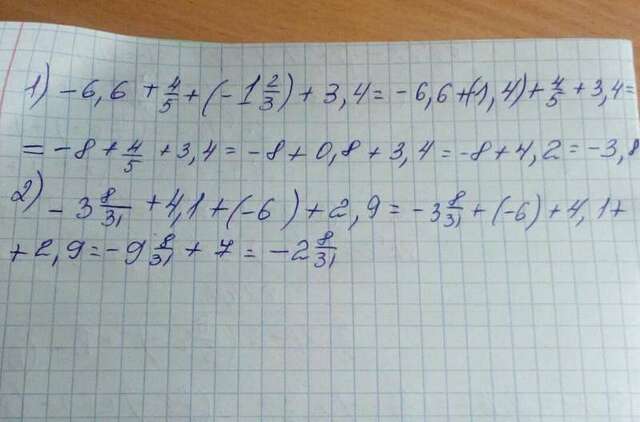 1) -6,6 + 4/5 + (-1 2/3) + 3,4 = -6,6 + (-1,4) + 4/5 + 3,4 =
= -8 + 4/5 + 3,4 = -8 + 0,8 + 3,4 = -8 + 4,2 = -3,8
2) -3 8/31 + 4,1 + (-6) + 2,9 = -3 8/31 + (-6) + 4,1 +
+ 2,9 = -9 8/31 + 7 = -2 8/31